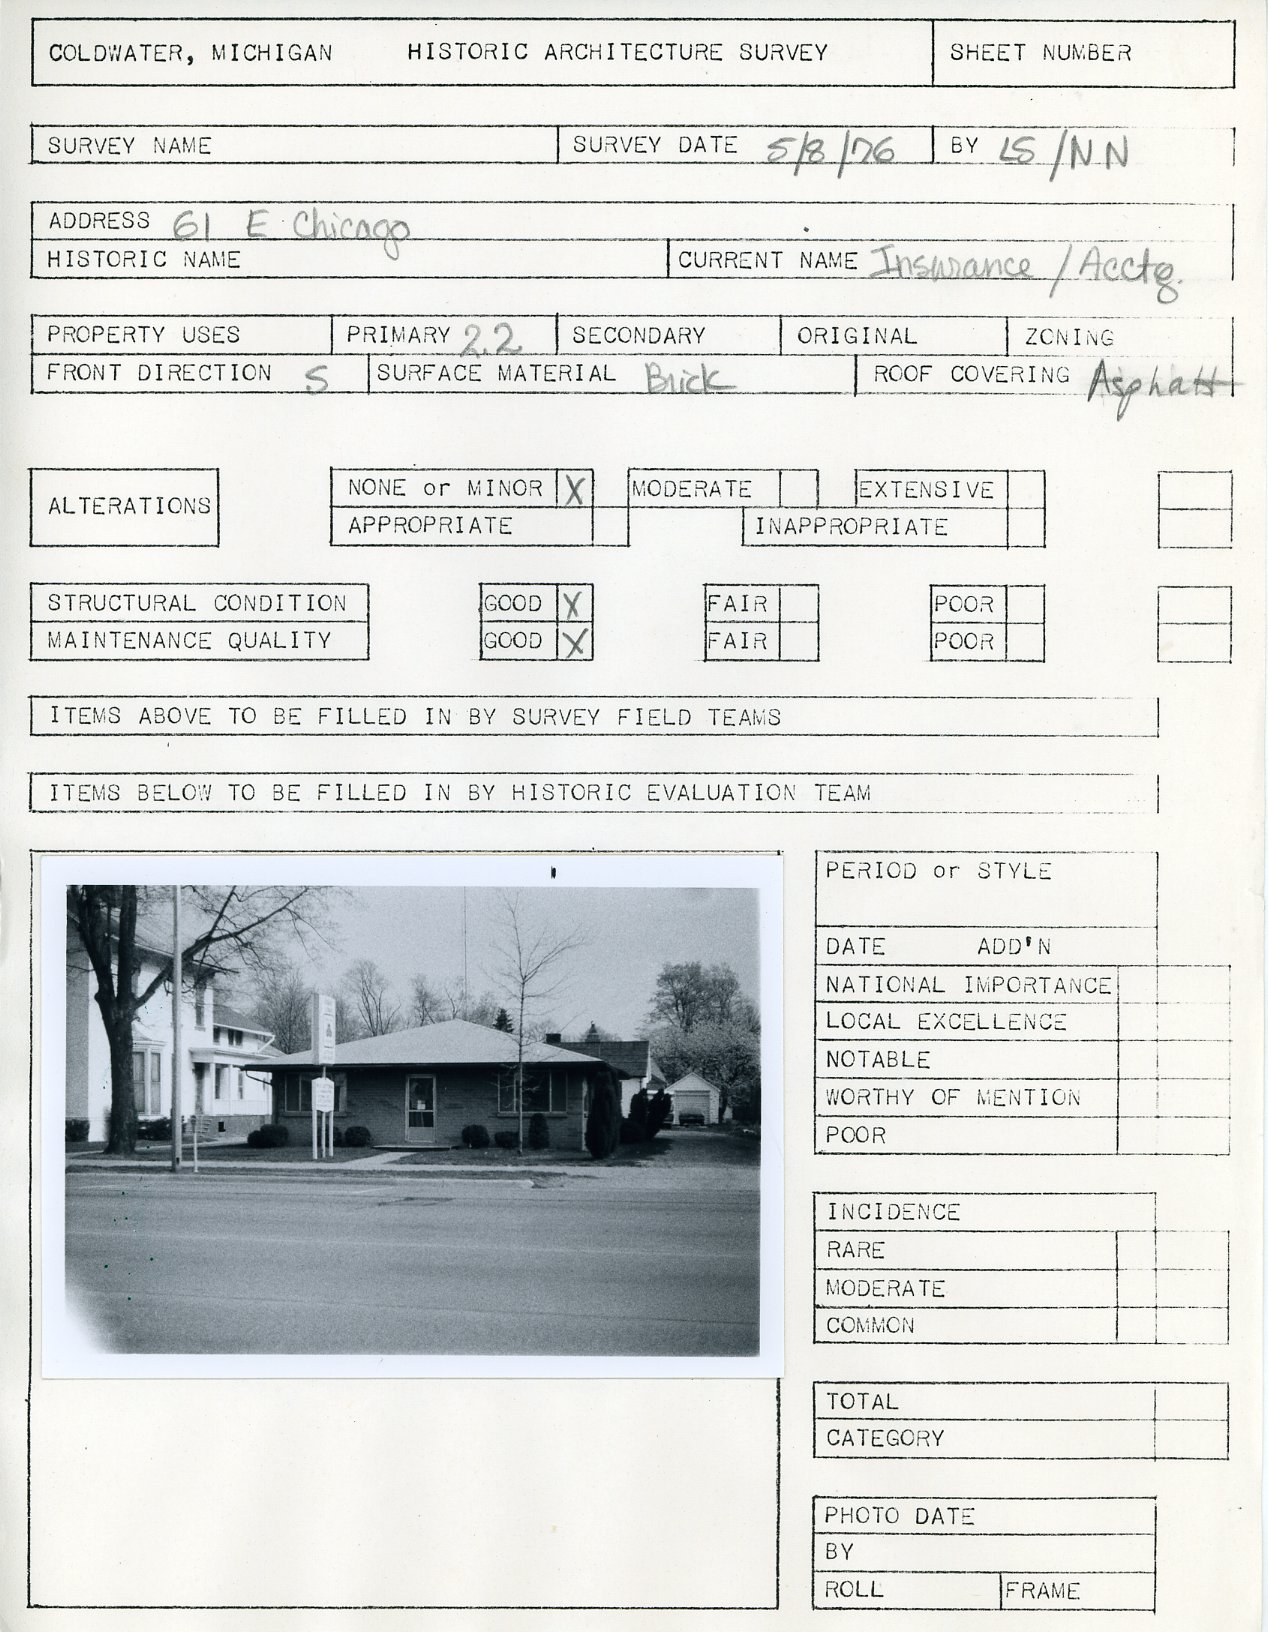 COLDWATER, MICHIGAN HISTORIC ARCHITECTURE SURVEY SHEET NUMBER
SURVEY NAME SURVEY DATE 5/8/76 BY LS/NN
ADDRESS 61 E Chicago
HISTORIC NAME CURRENT NAME Insurance / Acctg.
PROPERTY USES PRIMARY 2.2 SECONDARY ORIGINAL ZONING
FRONT DIRECTION S SURFACE MATERIAL Brick ROOF COVERING Asphalt
ALTERATIONS NONE or MINOR X MODERATE EXTENSIVE
APPROPRIATE INAPPROPRIATE
STRUCTURAL CONDITION GOOD X FAIR POOR
MAINTENANCE QUALITY GOOD X FAIR POOR
ITEMS ABOVE TO BE FILLED IN BY SURVEY FIELD TEAMS
ITEMS BELOW TO BE FILLED IN BY HISTORIC EVALUATION TEAM
PERIOD or STYLE
DATE ADD'N
NATIONAL IMPORTANCE
LOCAL EXCELLENCE
NOTABLE
WORTHY OF MENTION
POOR
INCIDENCE
RARE
MODERATE
COMMON
TOTAL
CATEGORY
PHOTO DATE
BY
ROLL FRAME